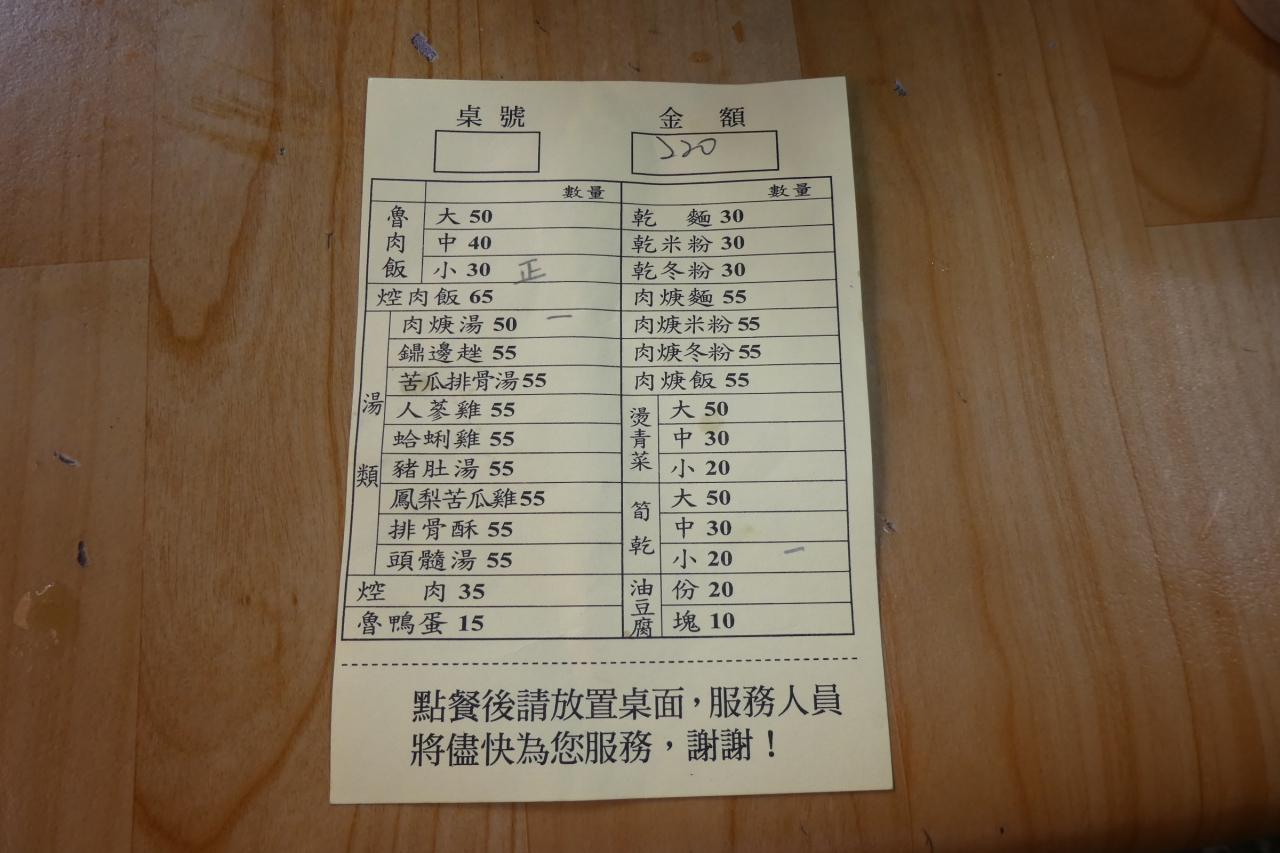 桌號 金額
220
數量 數量
魯肉飯 大 50 乾 麵 30
中 40 乾米粉 30
小 30 正 乾冬粉 30
焢肉飯 65 肉焿麵 55
湯類 肉焿湯 50 一 肉焿米粉 55
鍋邊趖 55 肉焿冬粉 55
苦瓜排骨湯 55 肉焿飯 55
人蔘雞 55 燙青菜 大 50
蛤蜊雞 55 中 30
豬肚湯 55 小 20
鳳梨苦瓜雞 55 筍乾 大 50
排骨酥 55 中 30
頭髓湯 55 小 20 一
焢 肉 35 油豆腐 份 20
魯鴨蛋 15 塊 10
點餐後請放置桌面，服務人員
將儘快為您服務，謝謝！